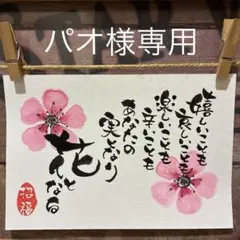 パオ様専用
嬉しいことも
哀しいことも
楽しいことも
辛いことも
あなたの
実となり
花と
なる
招福